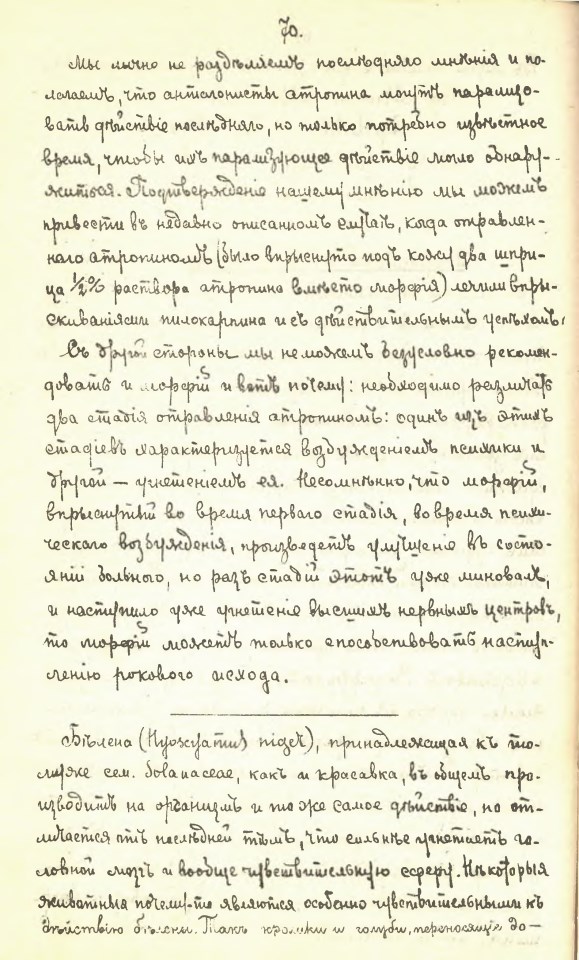 70.
Мы лично не раздѣляемъ послѣдняго мнѣнія и по-
лагаемъ, что антагонисты атропина могутъ парализо-
вать дѣйствіе послѣдняго, но только потребно извѣстное
время, чтобы ихъ парализующее дѣйствіе могло обнару-
житься. Подтвержденіе нашему мнѣнію мы можемъ
привести въ недавно описанномъ случаѣ, когда отравлен-
наго атропиномъ (было впрыснуто подъ кожу два шпри-
ца 1/2% раствора атропина вмѣсто морфія) лечили впры-
скиваніями пилокарпина и съ дѣйствительнымъ успѣхомъ.
Съ другой стороны мы не можемъ безусловно рекомен-
довать и морфій и вотъ почему: необходимо различать
два стадія отравленія атропиномъ: одинъ изъ этихъ
стадіевъ характеризуется возбужденіемъ психики и
другой — угнетеніемъ ея. Несомнѣнно, что морфій,
впрыснутый во время перваго стадія, во время психи-
ческаго возбужденія, произведетъ улучшеніе въ состо-
яніи больного, но разъ стадій этотъ уже миновалъ,
и наступило уже угнетеніе высшихъ нервныхъ центровъ,
то морфій можетъ только способствовать наступ-
ленію рокового исхода.
Бѣлена (Hyoscyamus niger), принадлежащая къ то-
му же сем. Solanaceae, какъ и красавка, въ общемъ про-
изводитъ на организмъ и то же самое дѣйствіе, но от-
личается отъ послѣдней тѣмъ, что сильнѣе угнетаетъ го-
ловной мозгъ и вообще чувствительную сферу. Нѣкоторыя
животныя почему-то являются особенно чувствительными къ
дѣйствію бѣлены. Такъ кролики и голуби, переносящіе до-